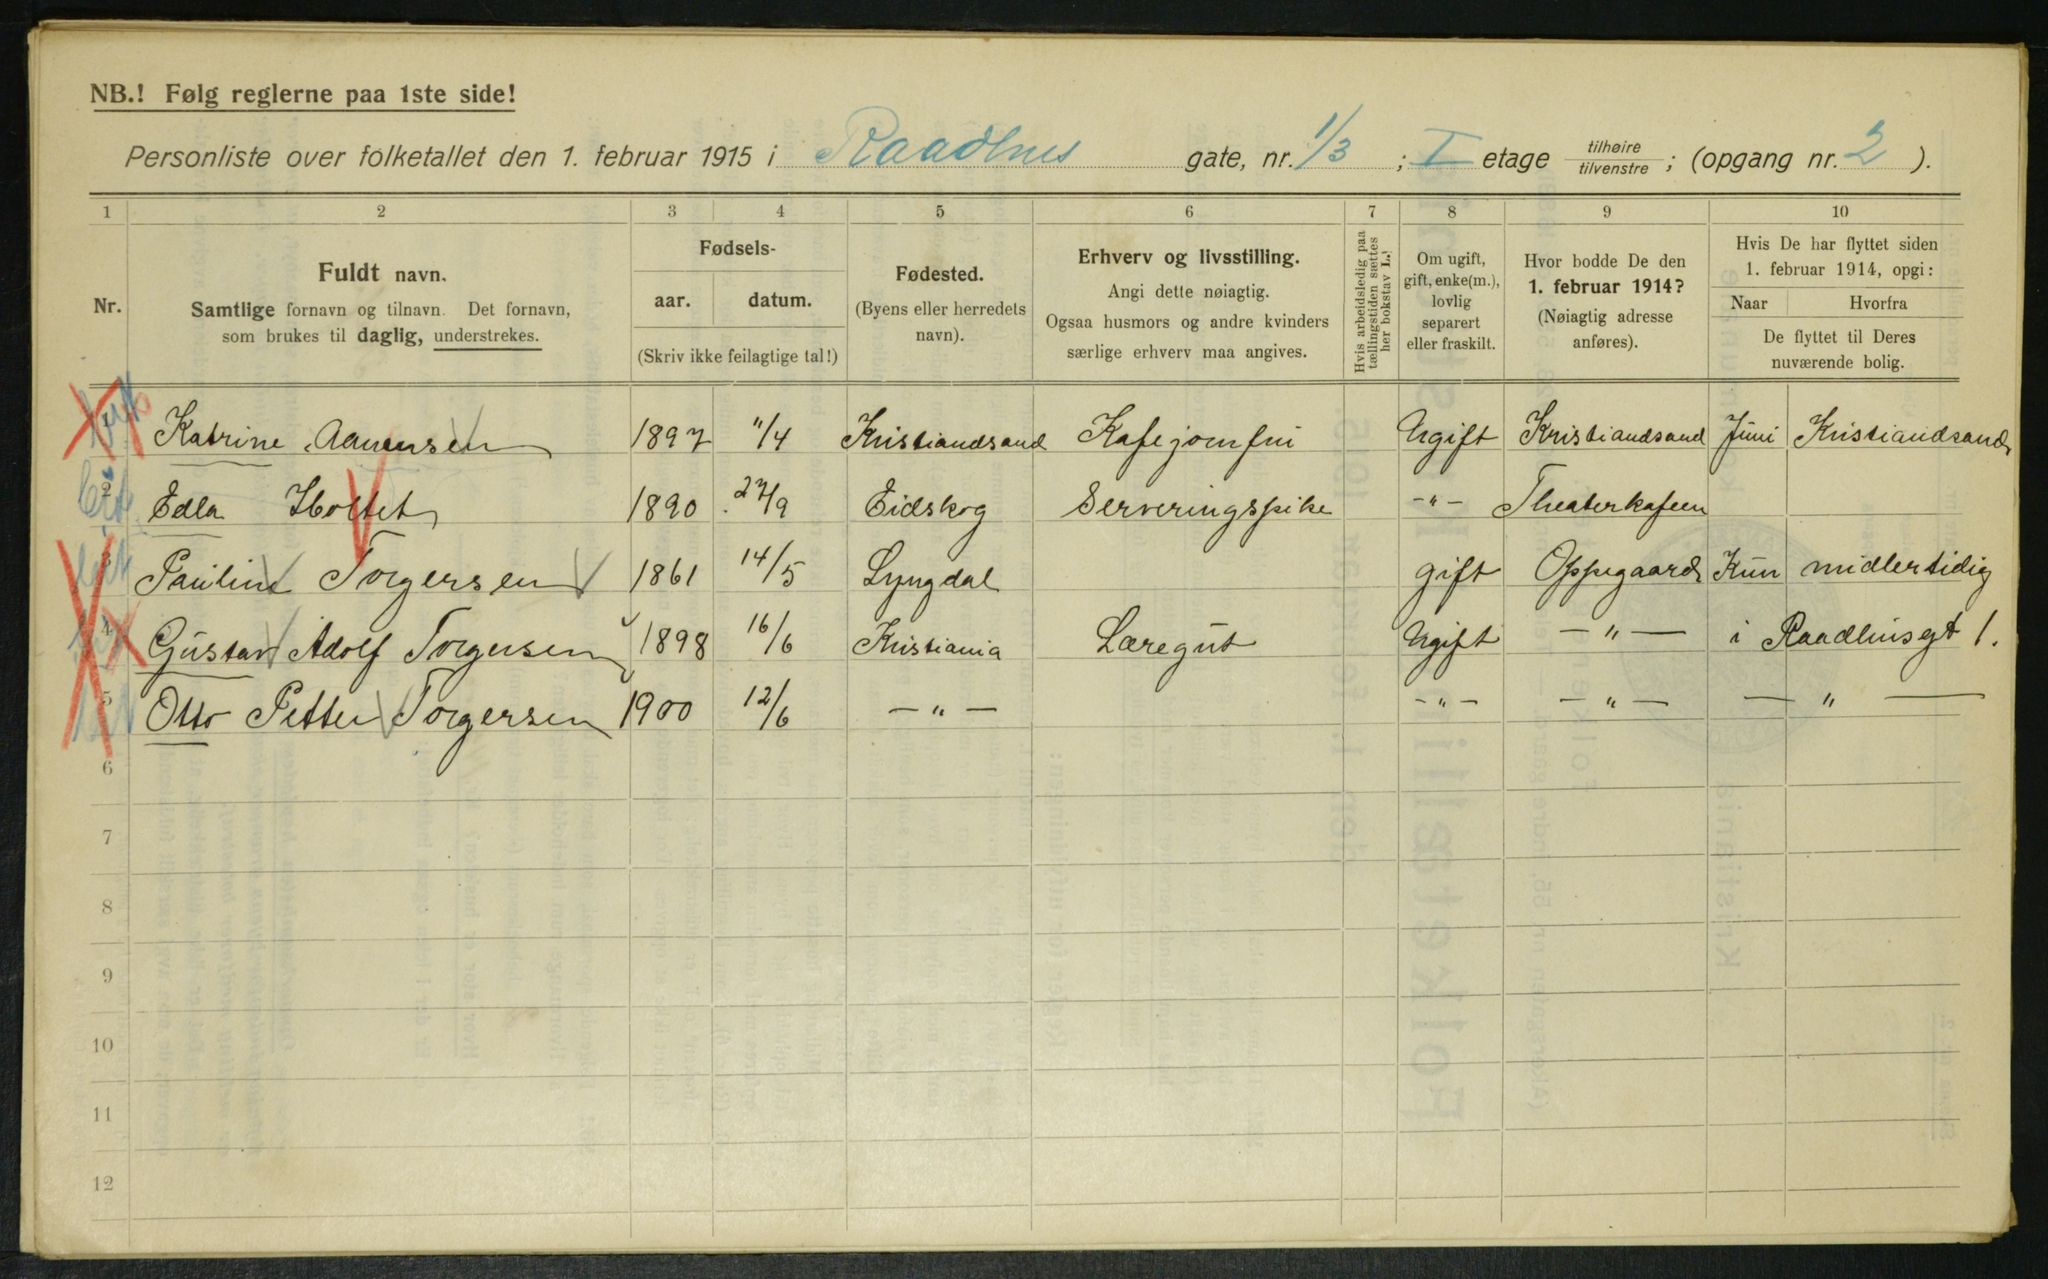 NB.! Følg reglerne paa 1ste side!
Personliste over folketallet den 1. februar 1915 i Raadhus gate, nr. 1/3 ; I etage tilhøire tilvenstre ; (opgang nr. 2 ).
1 2 3 4 5 6 7 8 9 10
Nr.
Fuldt navn.
Samtlige fornavn og tilnavn. Det fornavn,
som brukes til daglig, understrekes.
Fødsels-
aar. datum.
(Skriv ikke feilagtige tal!)
Fødested.
(Byens eller herredets
navn).
Erhverv og livsstilling.
Angi dette nøiagtig.
Ogsaa husmors og andre kvinders
særlige erhverv maa angives.
Hvis arbeidsledig paa
tællingstiden sættes
her bokstav L.!
Om ugift,
gift, enke(m.),
lovlig
separert
eller fraskilt.
Hvor bodde De den
1. februar 1914?
(Nøiagtig adresse
anføres).
Hvis De har flyttet siden
1. februar 1914, opgi:
Naar Hvorfra
De flyttet til Deres
nuværende bolig.
1 Katrine Aanensen 1897 11/4 Kristiandsand Kafejomfru Ugift Kristiandsand Juni Kristiandsand
2 Edla Holtet 1890 27/9 Eidskog Serveringspike -"- Theaterkafeen
3 Pauline Torgersen 1861 14/5 Lyngdal gift Oppegaard Kun midlertidig
4 Gustav Adolf Torgersen 1898 16/6 Kristiania Læregut Ugift -"- i Raadhusgt 1.
5 Otto Petter Torgersen 1900 12/6 -"- -"- -"- -"-
6
7
8
9
10
11
12